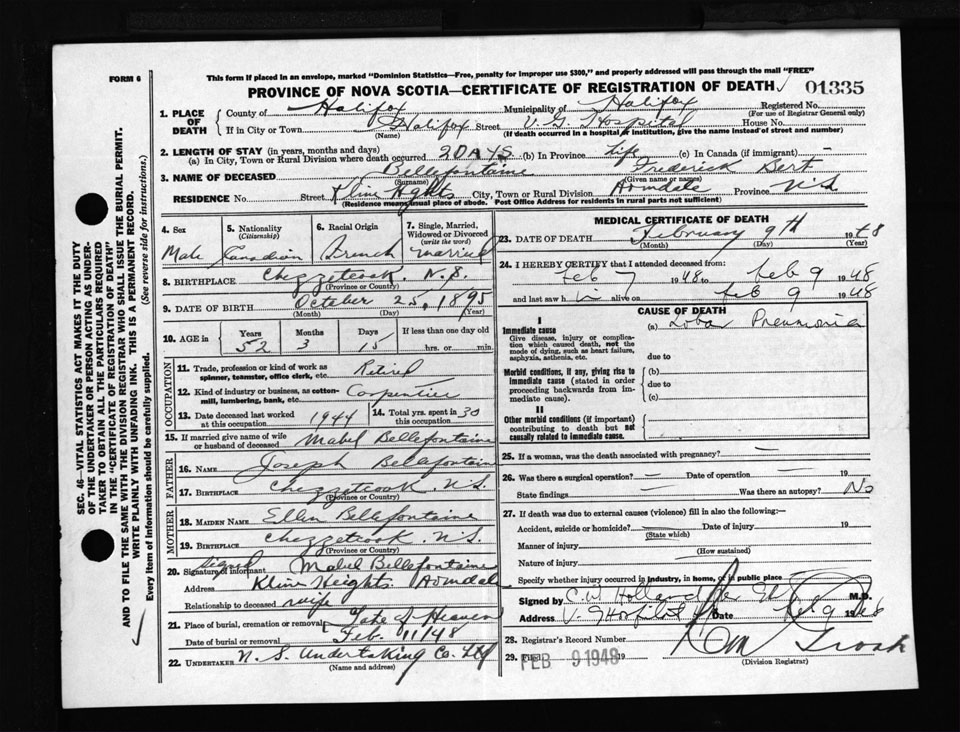 FORM 6
This form if placed in an envelope, marked "Dominion Statistics—Free, penalty for improper use $300," and properly addressed will pass through the mail "FREE"
PROVINCE OF NOVA SCOTIA—CERTIFICATE OF REGISTRATION OF DEATH 01335
1. PLACE OF DEATH County of Halifax Municipality of Halifax Registered No.
(For use of Registrar General only)
If in City or Town Halifax Street V. G. Hospital House No.
(Name) (If death occurred in a hospital or institution, give the name instead of street and number)
2. LENGTH OF STAY (in years, months and days)
(a) In City, Town or Rural Division where death occurred 2 DAYS (b) In Province Life (c) In Canada (if immigrant) —
3. NAME OF DECEASED Bellefontaine Frederick Bert
(Surname) (Given name or names)
RESIDENCE No. Street Kline Hghts City, Town or Rural Division Armdale Province N.S.
(Residence means usual place of abode. Post Office Address for residents in rural parts not sufficient)
4. Sex Male
5. Nationality (Citizenship) Canadian
6. Racial Origin French
7. Single, Married, Widowed or Divorced (write the word) married
8. BIRTHPLACE Chezzetcook N.S.
(Province or Country)
9. DATE OF BIRTH October 25, 1895
(Month) (Day) (Year)
10. AGE in Years 52 Months 3 Days 15 If less than one day old hrs. or min.
OCCUPATION
11. Trade, profession or kind of work as spinner, teamster, office clerk, etc. Retired
12. Kind of industry or business, as cotton-mill, lumbering, bank, etc. Carpentier
13. Date deceased last worked at this occupation 1944 14. Total yrs. spent in this occupation 30
15. If married give name of wife or husband of deceased Mabel Bellefontaine
FATHER
16. NAME Joseph Bellefontaine
17. BIRTHPLACE Chezzetcook. N.S.
(Province or Country)
MOTHER
18. MAIDEN NAME Ellen Bellefontaine
19. BIRTHPLACE Chezzetcook. N.S.
(Province or Country)
20. Signature of informant Signed Mabel Bellefontaine
Address Kline Heights. Armdale
Relationship to deceased wife
21. Place of burial, cremation or removal Gate of Heaven
Date of burial or removal Feb. 11/48
22. UNDERTAKER N. S. Undertaking Co. Ltd
(Name and address)
MEDICAL CERTIFICATE OF DEATH
23. DATE OF DEATH February 9th 1948
(Month) (Day) (Year)
24. I HEREBY CERTIFY that I attended deceased from:
Feb 7 1948 to Feb 9 1948
and last saw him alive on Feb 9 1948
CAUSE OF DEATH
I
Immediate cause
Give disease, injury or complication which caused death, not the mode of dying, such as heart failure, asphyxia, asthenia, etc.
(a) Lobar Pneumonia
due to
Morbid conditions, if any, giving rise to immediate cause (stated in order proceeding backwards from immediate cause)
(b)
due to
(c)
II
Other morbid conditions (if important) contributing to death but not causally related to immediate cause.
25. If a woman, was the death associated with pregnancy? —
26. Was there a surgical operation? — Date of operation 19
State findings — Was there an autopsy? No
27. If death was due to external causes (violence) fill in also the following:—
Accident, suicide or homicide? Date of injury 19
(State which)
Manner of injury
(How sustained)
Nature of injury
Specify whether injury occurred in industry, in home, or in public place
Signed by C. W. Holland M.D.
Address V. G. Hospital Date Feb 9 1948
28. Registrar's Record Number
29. Filed FEB 9 1948 19
(Division Registrar)
SEC. 46—VITAL STATISTICS ACT MAKES IT THE DUTY
OF THE UNDERTAKER OR PERSON ACTING AS UNDER-
TAKER TO OBTAIN ALL THE PARTICULARS REQUIRED
IN THE "CERTIFICATE OF REGISTRATION OF DEATH"
AND TO FILE THE SAME WITH THE DIVISION REGISTRAR WHO SHALL ISSUE THE BURIAL PERMIT.
WRITE PLAINLY WITH UNFADING INK. THIS IS A PERMANENT RECORD.
Every item of information should be carefully supplied. (See reverse side for instructions.)